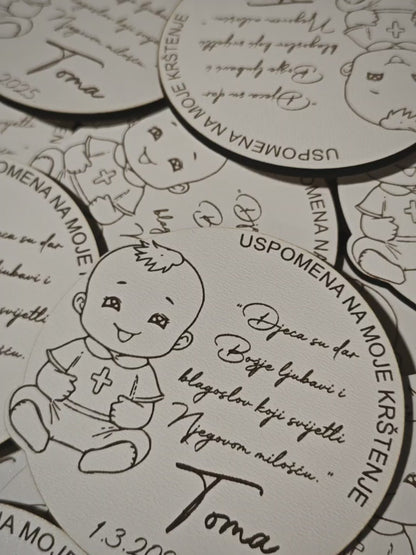 USPOMENA NA MOJE KRŠTENJE
"Djeca su dar
Božje ljubavi i
blagoslov koji svijetli
Njegovom milošću."
Toma
1.3.20
Njegovom milošću
Toma
2025
USPOMENA NA MOJE KRŠTENJE
"Djeca su dar
Božje ljubavi i
blagoslov koji svijetli
Njegovom milošću
OMENA NA MOJE
Djeca su dar
ljubavi i
svijetli
NA MOJE